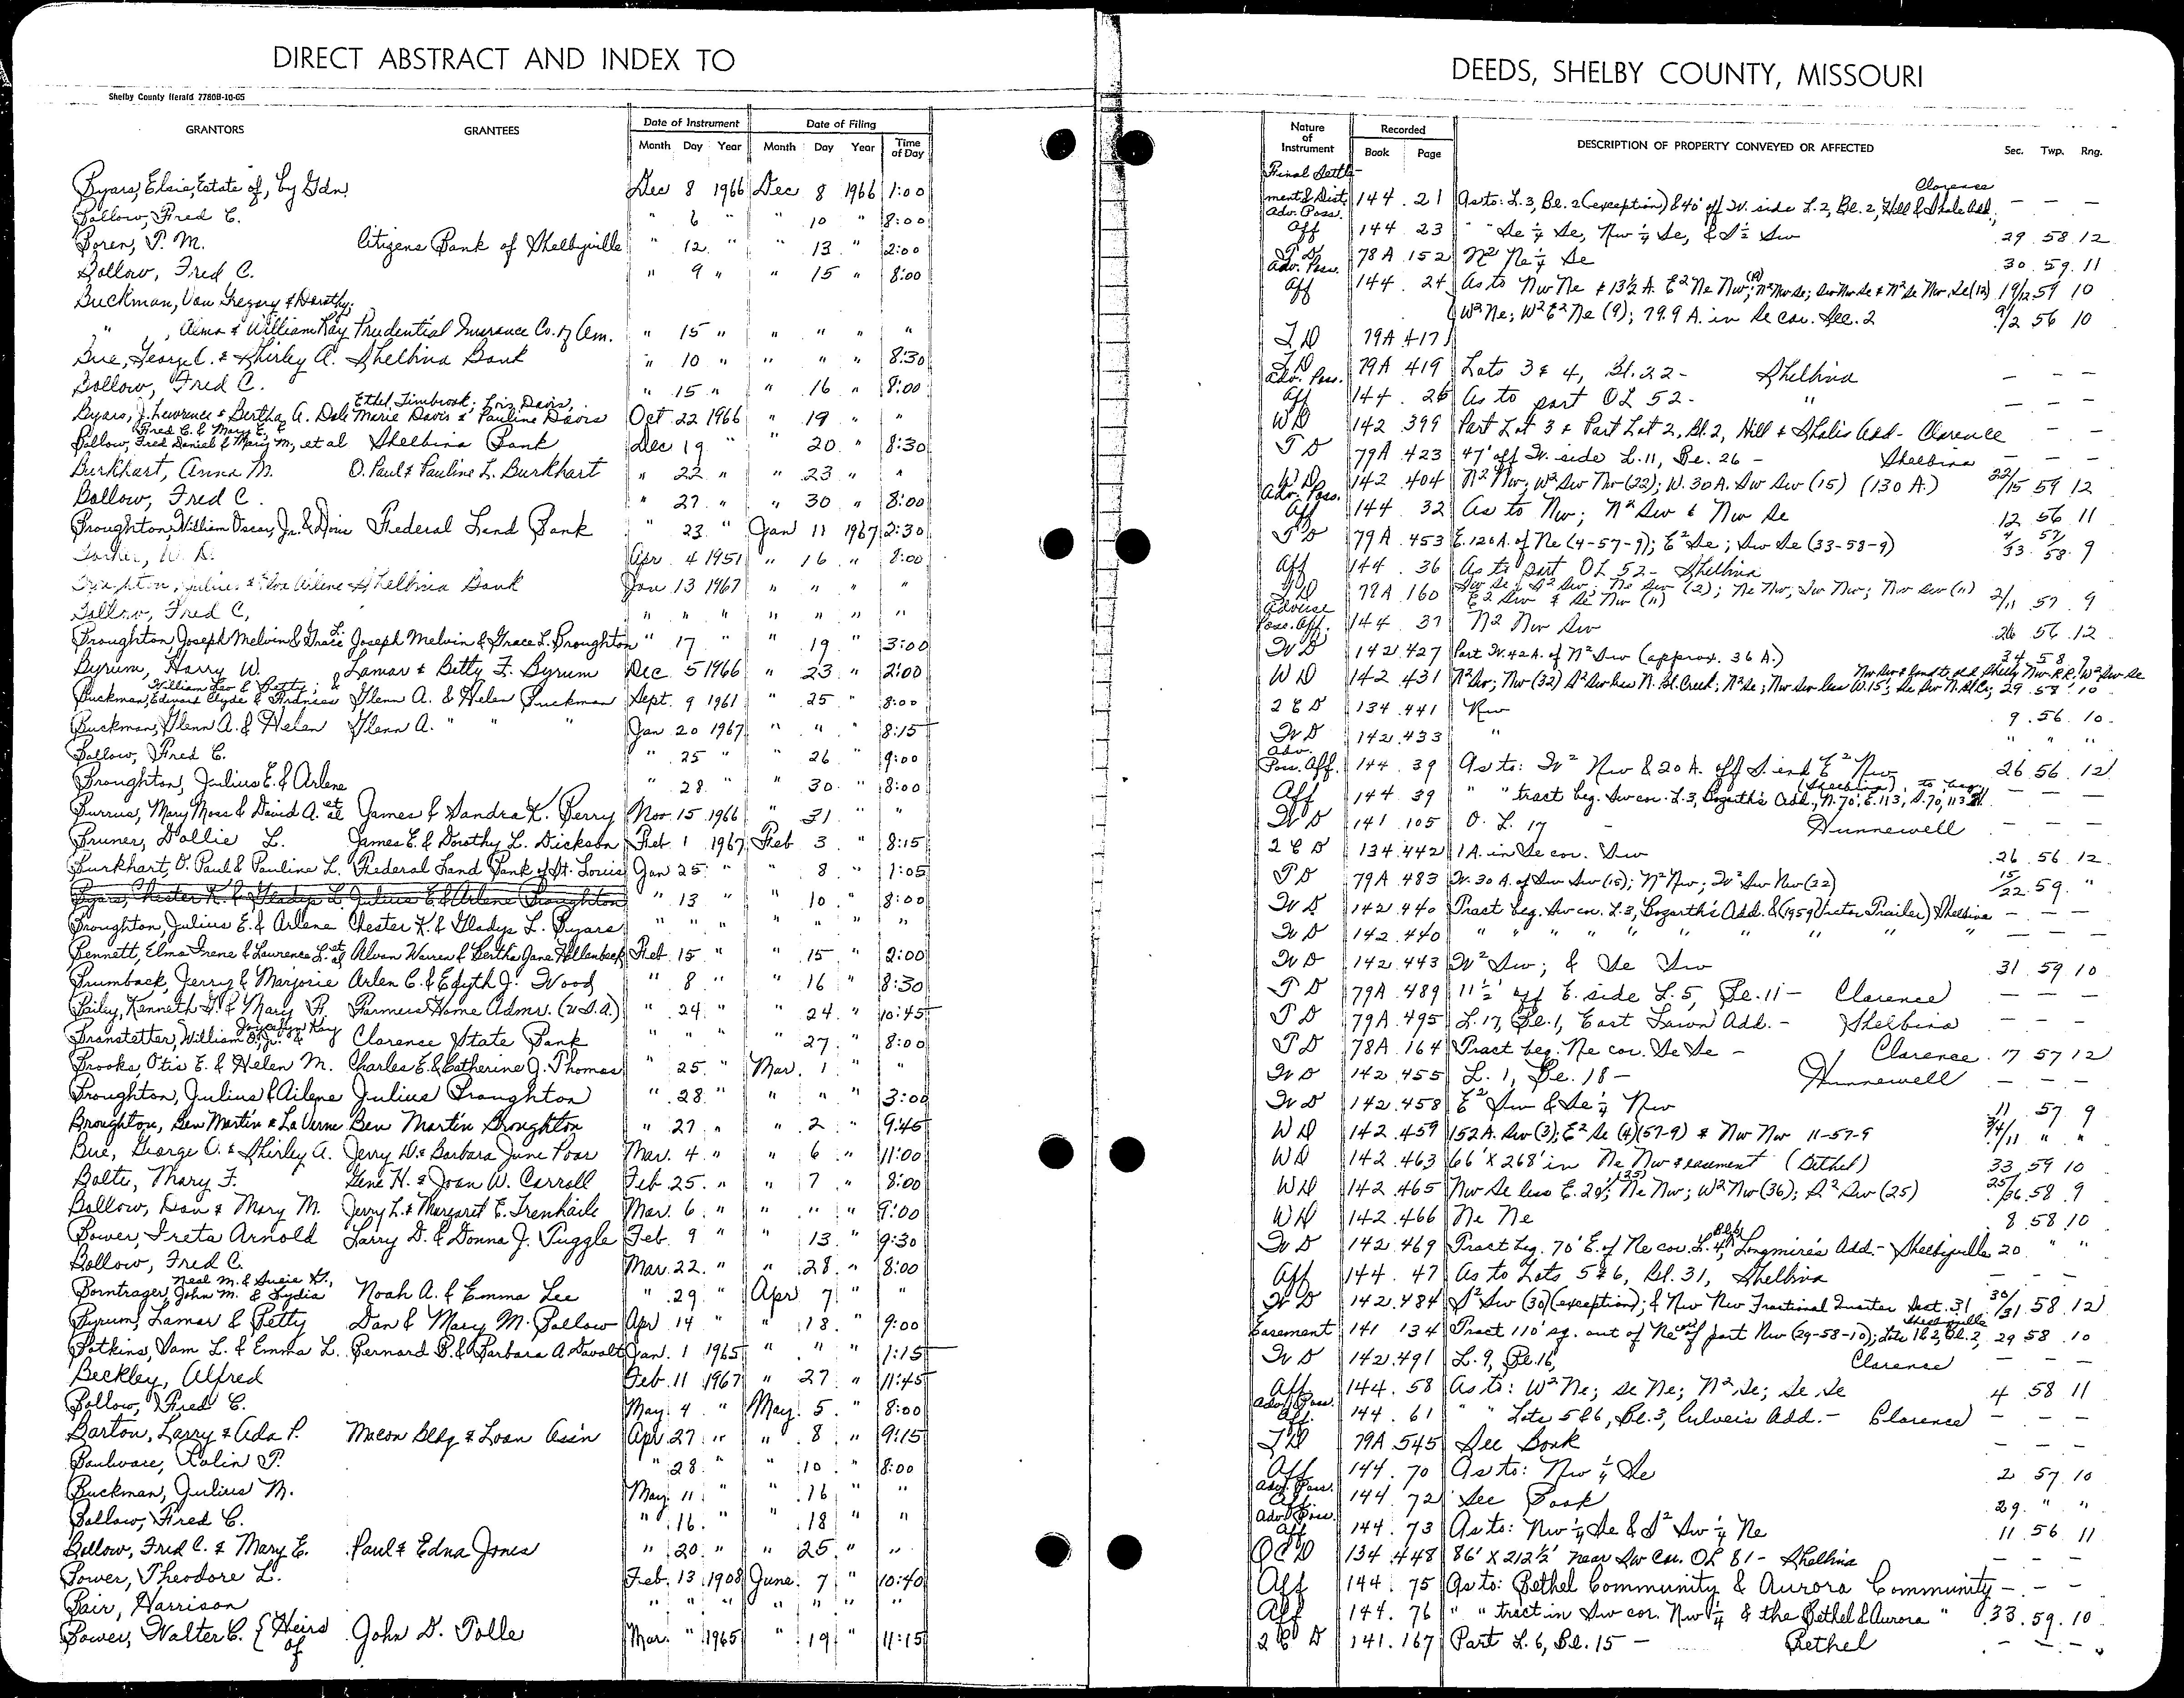 DIRECT ABSTRACT AND INDEX TO
DEEDS, SHELBY COUNTY, MISSOURI
Shelby County Herald 7780B-10-65
GRANTORS GRANTEES Date of Instrument Date of Filing
Month Day Year Month Day Year Time of Day
Nature of Instrument Recorded DESCRIPTION OF PROPERTY CONVEYED OR AFFECTED
Book Page Sec. Twp. Rng.
Byars, Elsie, Estate of, by Gdn. Dec 8 1966 Dec 8 1966 1:00
Bollow, Fred C. " 6 " " 10 " 8:00
Boren, P. M. Citizens Bank of Shelbyville " 12 " " 13 " 2:00
Bollow, Fred C. " 9 " " 15 " 8:00
Buckman, Van Gregory & Dorothy;
" , Alma & William Ray Prudential Insurance Co. of Am. " 15 " " " " "
Bue, George C. & Shirley A. Shelbina Bank " 10 " " " " 8:30
Bollow, Fred C. " 15 " " 16 " 8:00
Ethel Timbrook; Lois Davis,
Byars, J. Lawrence & Bertha A. Dale Marie Davis & Pauline Davis Oct 22 1966 " 19 " "
Fred C. & Mary E. &
Bollow, Fred Daniel & Mary M., et al Shelbina Bank Dec 19 " " 20 " 8:30
Burkhart, Anna M. O. Paul & Pauline L. Burkhart " 22 " " 23 " "
Bollow, Fred C. " 27 " " 30 " 8:00
Broughton, William Oscar, Jr. & Federal Land Bank " 23 " Jan 11 1967 2:30
Apr 4 1951 " 16 " 8:00
Broughton, Julius & Arlene Shelbina Bank Jan 13 1967 " " " "
Bollow, Fred C. " " " " " " "
Broughton, Joseph Melvin & Grace L. Joseph Melvin & Grace L. Broughton " 17 " " 19 " 3:00
Byrum, Harry W. Lamar & Betty F. Byrum Dec 5 1966 " 23 " 2:00
William Leo & Betty; &
Buckman, Edward Clyde & Frances Glenn A. & Helen Buckman Sept. 9 1961 " 25 " 8:00
Buckman, Glenn A. & Helen Glenn A. " " Jan 20 1967 " " " 8:15
Bollow, Fred C. " 25 " " 26 " 9:00
Broughton, Julius E. & Arlene " 28 " " 30 " 8:00
Burrus, Mary Moss & David A. et al James & Sandra K. Berry Nov. 15 1966 " 31 " "
Bruner, Dollie L. James E. & Dorothy L. Dickson Feb. 1 1967 Feb 3 " 8:15
Burkhart, O. Paul & Pauline L. Federal Land Bank of St. Louis Jan 25 " " 8 " 1:05
Byars, Chester K. & Gladys L. Julius E. & Arlene Broughton " 13 " " 10 " 8:00
Broughton, Julius E. & Arlene Chester K. & Gladys L. Byars " " " " " " "
Bennett, Elma Irene & Laurence L. et al Alvan Warren & Bertha Jane Hollenbeck Feb. 15 " " 15 " 2:00
Brumback, Jerry & Marjorie Arlen C. & Edyth J. Wood " 8 " " 16 " 8:30
Bailey, Kenneth G. & Mary F. Farmers Home Admr. (U.S.A.) " 24 " " 24 " 10:45
Branstetter, William O., Jr. & Joycelyn Kay Clarence State Bank " " " " 27 " 8:00
Brooks, Otis E. & Helen M. Charles E. & Catherine J. Thomas " 25 " Mar. 1 " "
Broughton, Julius & Ailene Julius Broughton " 28 " " " " 3:00
Broughton, Ben Martin & La Verne Ben Martin Broughton " 27 " " 2 " 9:45
Bue, George C. & Shirley A. Jerry D. & Barbara June Poor Mar. 4 " " 6 " 11:00
Bolte, Mary F. Gene H. & Joan W. Carroll Feb 25 " " 7 " 8:00
Bollow, Dan & Mary M. Jerry L. & Margaret E. Trenhaile Mar. 6 " " " " 9:00
Bower, Freta Arnold Larry D. & Donna J. Tuggle Feb. 9 " " 13 " 9:30
Bollow, Fred C. Mar. 22 " " 28 " 8:00
Neal M. & Susie D.,
Borntrager, John M. & Lydia Noah A. & Emma Lee " 29 " Apr 7 " "
Byrum, Lamar & Betty Dan & Mary M. Bollow Apr 14 " " 18 " 9:00
Botkins, Sam L. & Emma L. Bernard B. & Barbara A. Davolt Jan. 1 1965 " " " 1:15
Beckley, Alfred Feb. 11 1967 " 27 " 11:45
Bollow, Fred C. May 4 " May 5 " 8:00
Barton, Larry & Ada P. Macon Bldg & Loan Ass'n Apr 27 " " 8 " 9:15
Boulware, Colin P. " 28 " " 10 " 8:00
Buckman, Julius M. May 11 " " 16 " "
Bollow, Fred C. " 16 " " 18 " "
Bollow, Fred C. & Mary E. Paul & Edna Jones " 20 " " 25 " "
Bower, Theodore L. Feb. 13 1908 June 7 " 10:40
Bair, Harrison " " " " " " "
Bower, Walter C. { Heirs of John D. Tolle Mar. " 1965 " 19 " 11:15
Final Settlement & Dist. 144 21 As to: L. 3, Bl. 2 (exception) & 40' off W. side L. 2, Bl. 2, Hill & Shale Add, Clarence – – –
Adv. Poss. Aff 144 23 " " Se ¼ Se, Nw ¼ Se, & S ½ Sw 29 58 12
T D 78A 152 N² Ne ¼ Se 30 59 11
Adv. Poss. Aff 144 24 As to Nw Ne & 13½ A. E² Ne Nw (19); N² Nw Se; Sw Nw Se & N² Se Nw Se (12) 19/12 59 10
T D 79A 417 W² Ne; W² E² Ne (9); 79.9 A. in Se cor. Sec. 2 9/2 56 10
T D 79A 419 Lots 3 & 4, Bl. 22 - Shelbina – – –
Adv. Poss. Aff 144 26 As to part OL 52 - " – – –
W D 142 399 Part Lot 3 & Part Lot 2, Bl. 2, Hill & Shale's Add - Clarence – – –
T D 79A 423 47' off W. side L. 11, Bl. 26 - Shelbina – – –
W D 142 404 N² Nw; W² Sw Nw (22); W. 30 A. Sw Sw (15) (130 A.) 22/15 59 12
Adv. Poss. Aff 144 32 As to Nw; N² Sw & Nw Se 12 56 11
T D 79A 453 E. 120 A. of Ne (4-57-9); E² Se; Sw Se (33-58-9) 4/33 57/58 9
Aff 144 36 As to part OL 52 - Shelbina
T D 78A 160 Sw Se; S² Sw; Ne Sw (2); Ne Nw, Sw Nw; Nw Sw (11) E² Sw & Se Nw (11) 2/11 57 9
Adverse Poss. Aff. 144 37 N² Nw Sw 26 56 12
W D 142 427 Part W. 42 A. of N² Sw (approx. 36 A.) 34 58 9
W D 142 431 N² Sw; Nw (32) S² Sw less N. Bl. Creek; N² Se; Nw Sw less W. 15'; Se Sw N. Bl. Cr; 29 58 10
2 C D 134 441 Nw 9 56 10
W D 142 433 " " " "
Adv. Poss. Aff. 144 39 As to: W² Nw & 20 A. off S. end E² Nw 26 56 12
Aff 144 39 " " tract beg. Sw cor. L. 3, Bozarth's Add., N. 70', E. 113, S. 70, 113 (Shelbina), to beg – – –
W D 141 105 O. L. 17 - Hunnewell – – –
2 C D 134 442 1 A. in Se cor. Sw 26 56 12
T D 79A 483 W. 30 A. of Sw Sw (15); N² Nw; W² Sw Nw (22) 15/22 59 "
W D 142 440 Tract beg. Sw cor. L. 3, Bozarth's Add. & (1959 Victor Trailer) Shelbina – – –
W D 142 440 " " " " " " " " – – –
W D 142 443 W² Sw; & Se Sw 31 59 10
T D 79A 489 11½' off E. side L. 5, Bl. 11 - Clarence – – –
T D 79A 495 L. 17, Bl. 1, East Lawn Add. - Shelbina – – –
T D 78A 164 Tract beg. Ne cor. Se Se - Clarence 17 57 12
W D 142 455 L. 1, Bl. 18 - Hunnewell – – –
W D 142 458 E² Sw & Se ¼ Nw 11 57 9
W D 142 459 152 A. Sw (3); E² Se (4) (57-9) & Nw Nw 11-57-9 3/4/11 " "
W D 142 463 66' X 268' in Ne Nw & easement (Bethel) 33 59 10
W D 142 465 Nw Se less E. 20' (35); Ne Nw; W² Nw (36); S² Sw (25) 25/36 58 9
W D 142 466 Ne Ne 8 58 10
W D 142 469 Tract beg. 70' E. of Ne cor. L. 4, Longmire's Add. - Shelbyville 20 " "
Aff 144 47 As to Lots 5 & 6, Bl. 31, Shelbina – – –
W D 142 484 S² Sw (30) (exception); & Nw Nw Fractional Quarter Sect. 31 30/31 58 12
Easement 141 134 Tract 110' sq. out of Ne cor of part Nw (29-58-10); Lots 1 & 2, Bl. 2, Shelbyville 29 58 10
W D 142 491 L. 9, Bl. 16, Clarence – – –
Aff 144 58 As to: W² Ne; Se Ne; N² Se; Se Se 4 58 11
Adv. Poss. Aff. 144 61 " " Lots 5 & 6, Bl. 3, Culver's Add. - Clarence – – –
T D 79A 545 See Book – – –
Aff 144 70 As to: Nw ¼ Se 2 57 10
Adv. Poss. Aff 144 72 See Book 29 " "
Adv. Poss. Aff 144 73 As to: Nw ¼ Se & S² Sw ¼ Ne 11 56 11
Q C D 134 448 86' X 212½' near Sw Cor. OL 81 - Shelbina – – –
Aff 144 75 As to: Bethel Community & Aurora Community – – –
Aff 144 76 " " tract in Sw cor. Nw ¼ & the Bethel & Aurora " 33 59 10
2 C D 141 167 Part L. 6, Bl. 15 - Bethel – – –